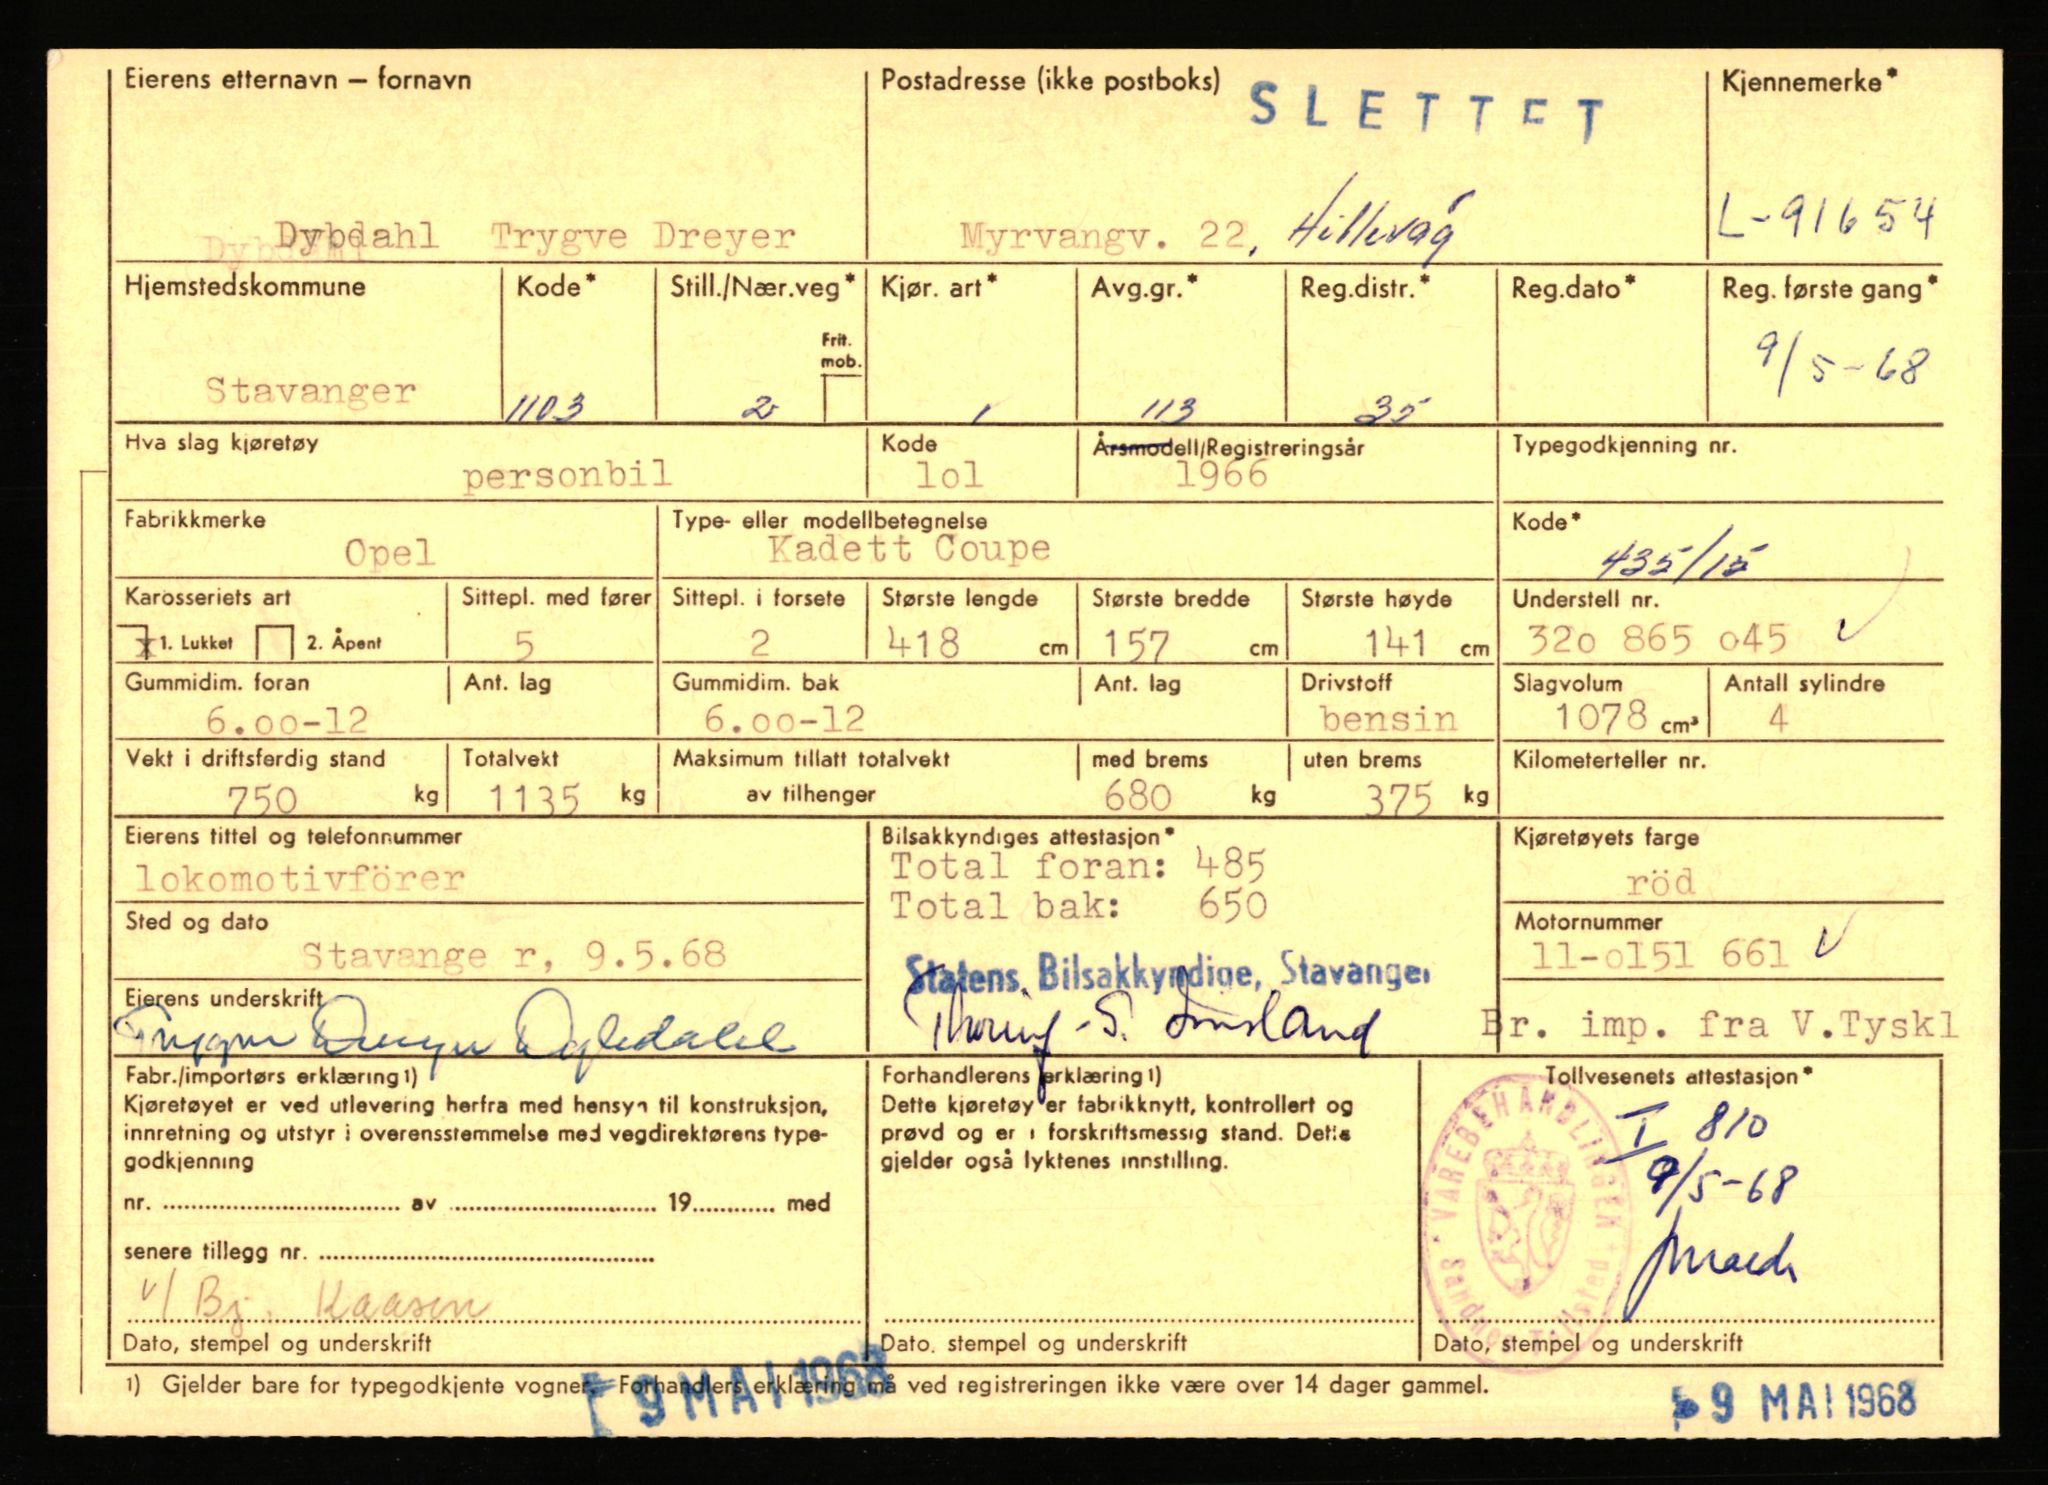 Eierens etternavn — fornavn
Postadresse (ikke postboks)
SLETTET
Kjennemerke*
Dybdahl Trygve Dreyer
Myrvangv. 22, Hillevåg
L-91654
Hjemstedskommune
Kode*
Still./Nær.veg*
Kjør. art*
Avg.gr.*
Reg.distr.*
Reg.dato*
Reg. første gang*
Frit. mob.
9/5-68
Stavanger
1103
2
1
113
35
Hva slag kjøretøy
Kode
Årsmodell/Registreringsår
Typegodkjenning nr.
personbil
lol
1966
Fabrikkmerke
Type- eller modellbetegnelse
Kode*
Opel
Kadett Coupe
435/15
Karosseriets art
Sittepl. med fører
Sittepl. i forsete
Største lengde
Største bredde
Største høyde
Understell nr.
x 1. Lukket 2. Åpent
5
2
418 cm
157 cm
141 cm
32o 865 o45
Gummidim. foran
Ant. lag
Gummidim. bak
Ant. lag
Drivstoff
Slagvolum
Antall sylindre
6.oo-12
6.oo-12
bensin
1078 cm³
4
Vekt i driftsferdig stand
Totalvekt
Maksimum tillatt totalvekt
med brems
uten brems
Kilometerteller nr.
750 kg
1135 kg
av tilhenger
680 kg
375 kg
Eierens tittel og telefonnummer
Bilsakkyndiges attestasjon*
Kjøretøyets farge
lokomotivförer
Total foran: 485
röd
Total bak: 650
Sted og dato
Motornummer
Stavange r, 9.5.68
11-o151 661
Statens Bilsakkyndige, Stavanger
Eierens underskrift
Trygve Dreyer Dybdahl
Br. imp. fra V.Tyskl
Fabr./importørs erklæring 1)
Kjøretøyet er ved utlevering herfra med hensyn til konstruksjon,
innretning og utstyr i overensstemmelse med vegdirektørens type-
godkjenning
nr. av 19 med
senere tillegg nr.
v/ Bj. Kaasen
Dato, stempel og underskrift
Forhandlerens erklæring 1)
Dette kjøretøy er fabrikknytt, kontrollert og
prøvd og er i forskriftsmessig stand. Dette
gjelder også lyktenes innstilling.
Dato, stempel og underskrift
Tollvesenets attestasjon*
I 810
9/5-68
VAREBEHANDLINGEN
Tollsted
Dato, stempel og underskrift
1) Gjelder bare for typegodkjente vogner. Forhandlers erklæring må ved registreringen ikke være over 14 dager gammel.
9 MAI 1968
9 MAI 1968